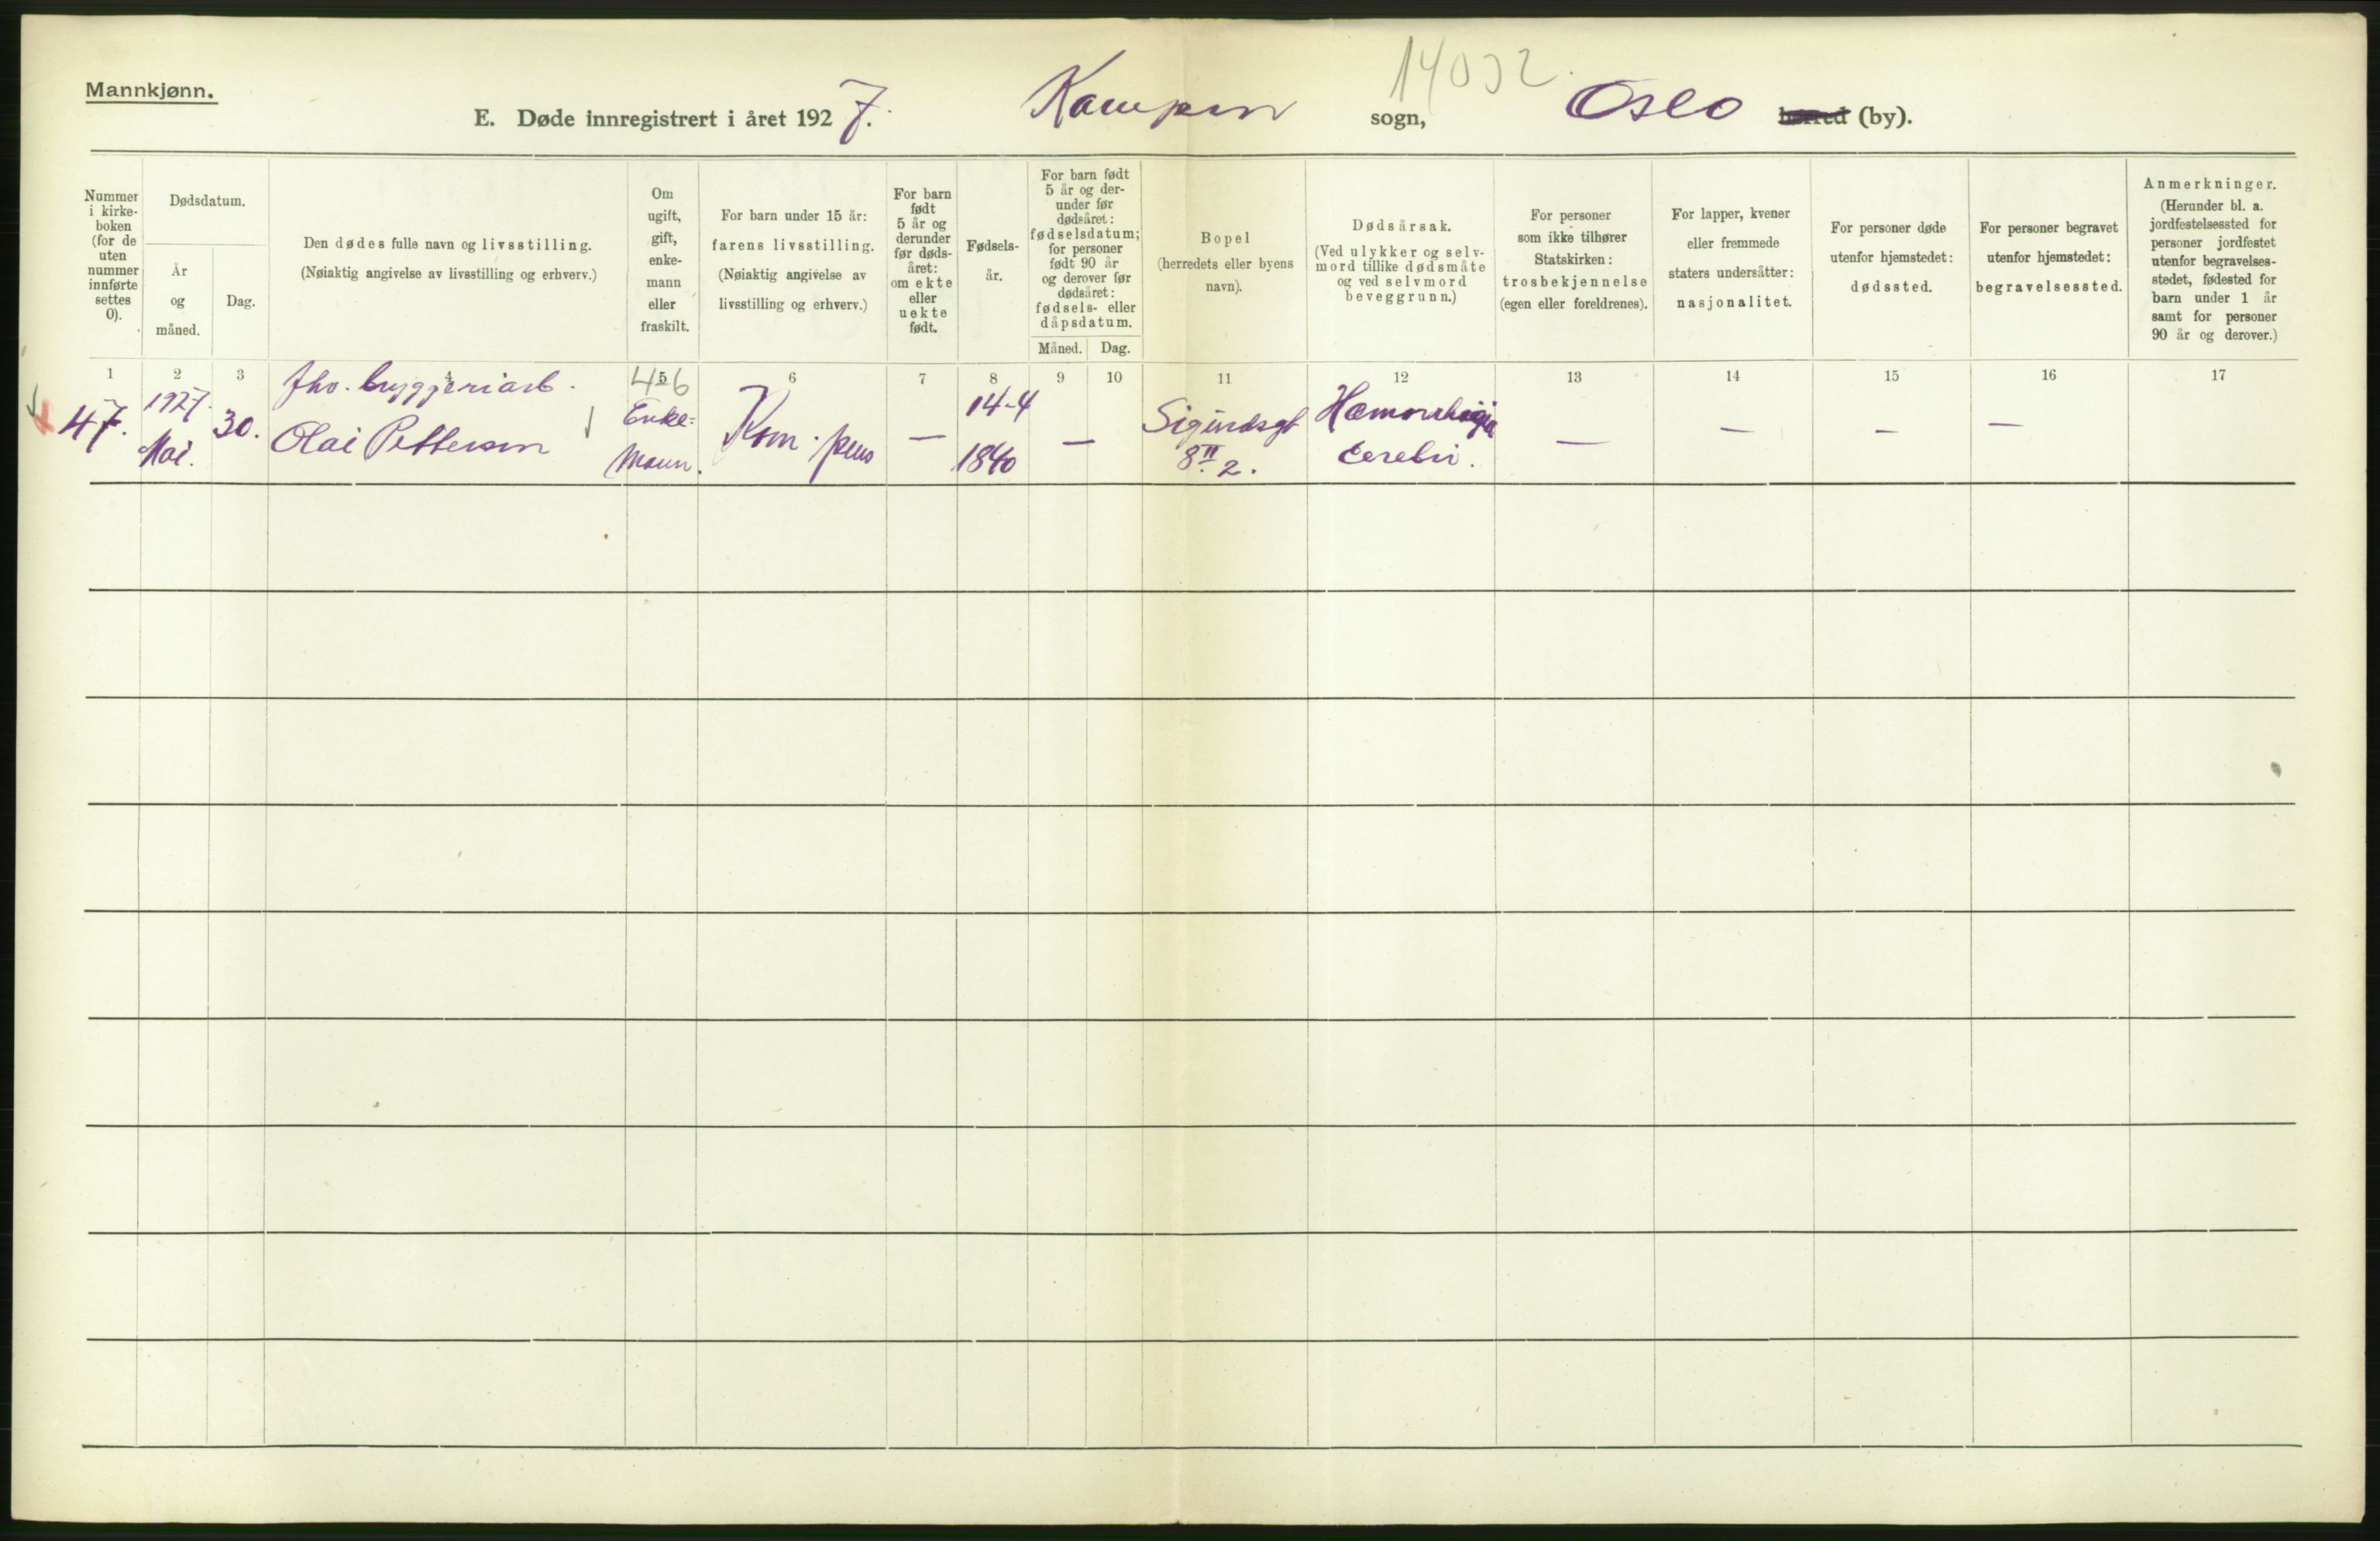 14032.
Mannkjønn.
E. Døde innregistrert i året 1927. Kampen sogn, Oslo herred (by).
Nummer
i kirke-
boken
(for de
uten
nummer
innførte
settes
0).
Dødsdatum.
År
og
måned.
Dag.
Den dødes fulle navn og livsstilling.
(Nøiaktig angivelse av livsstilling og erhverv.)
Om
ugift,
gift,
enke-
mann
eller
fraskilt.
For barn under 15 år:
farens livsstilling.
(Nøiaktig angivelse av
livsstilling og erhverv.)
For barn
født
5 år og
derunder
før døds-
året:
om ekte
eller
uekte
født.
Fødsels-
år.
For barn født
5 år og der-
under før
dødsåret:
fødselsdatum;
for personer
født 90 år
og derover før
dødsåret:
fødsels- eller
dåpsdatum.
Måned. Dag.
Bopel
(herredets eller byens
navn).
Dødsårsak.
(Ved ulykker og selv-
mord tillike dødsmåte
og ved selvmord
beveggrunn.)
For personer
som ikke tilhører
Statskirken:
trosbekjennelse
(egen eller foreldrenes).
For lapper, kvener
eller fremmede
staters undersåtter:
nasjonalitet.
For personer døde
utenfor hjemstedet:
dødssted.
For personer begravet
utenfor hjemstedet:
begravelsessted.
Anmerkninger.
(Herunder bl. a.
jordfestelsessted for
personer jordfestet
utenfor begravelses-
stedet, fødested for
barn under 1 år
samt for personer
90 år og derover.)
1 2 3 4 5 6 7 8 9 10 11 12 13 14 15 16 17
47.
1927.
Mai.
30.
fhv. bryggeriarb.
Olai Pettersen
Enke-
mann.
Kom. pens
—
14-4
1840
—
Sigurdsgt
8 II 2.
Hæmorrhagia
cerebri.
— — — —